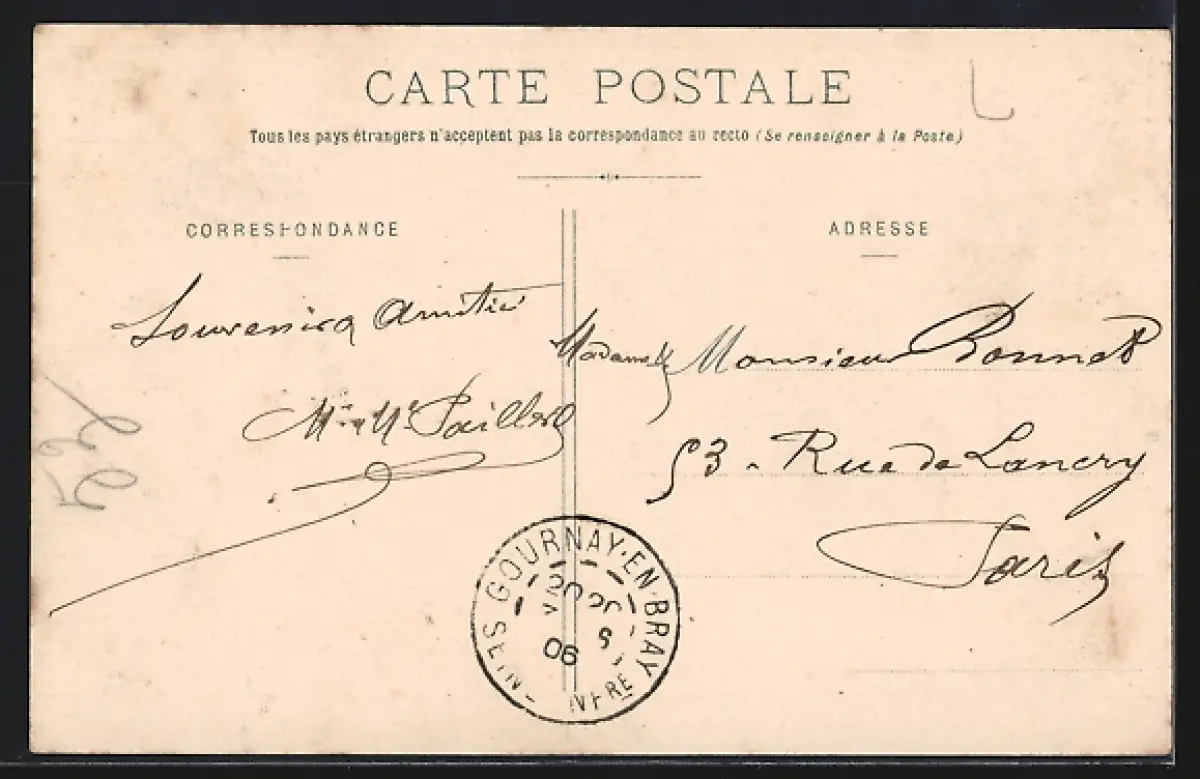 CARTE POSTALE
Tous les pays étrangers n'acceptent pas la correspondance au recto (Se renseigner à la Poste)
CORRESPONDANCE
ADRESSE
Souvenirs Amitié
Mr & Me Paillard
Madame & Monsieur Bonnet
53 - Rue de Lancry
Paris
GOURNAY-EN-BRAY
SEINE INFRE
06